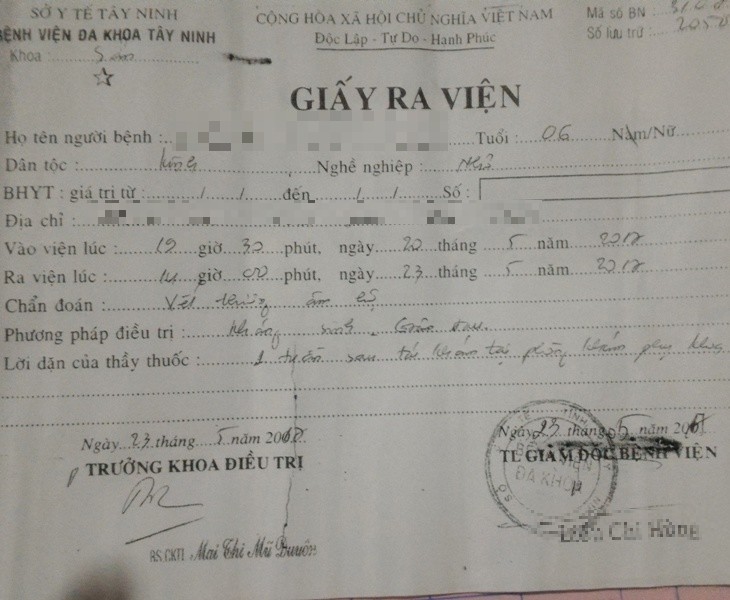 SỞ Y TẾ TÂY NINH
BỆNH VIỆN ĐA KHOA TÂY NINH
Khoa : Sản
CỘNG HÒA XÃ HỘI CHỦ NGHĨA VIỆT NAM
Độc Lập - Tự Do - Hạnh Phúc
Mã số BN :
Số lưu trữ :
GIẤY RA VIỆN
Họ tên người bệnh : Tuổi : 06 Nam/Nữ
Dân tộc : Kinh Nghề nghiệp : Nhỏ
BHYT : giá trị từ : / / đến / / Số :
Địa chỉ :
Vào viện lúc : 19 giờ 30 phút, ngày 20 tháng 5 năm 2017
Ra viện lúc : 14 giờ 00 phút, ngày 23 tháng 5 năm 2017
Chẩn đoán : Vết thương âm hộ
Phương pháp điều trị : Kháng sinh, Giảm đau.
Lời dặn của thầy thuốc : 1 tuần sau tái khám tại phòng khám phụ khoa
Ngày 23 tháng 5 năm 2017
TRƯỞNG KHOA ĐIỀU TRỊ
BS.CKII Mai Thi Mũ
Ngày 23 tháng 05 năm 2017
TL GIÁM ĐỐC BỆNH VIỆN
BỆNH VIỆN
ĐA KHOA
Chi Hùng